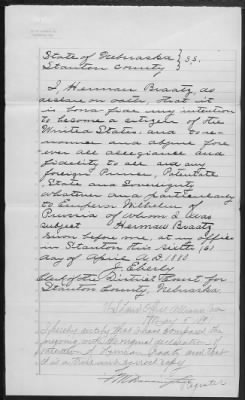 State of Nebraska } S.S.
Stanton County
I, Herman Braatz do
declare on oath, that it
is bona-fide my intention
to become a citizen of the
United States. and to re-
nounce and abjure fore-
ver all allegiance and
fidelity to all and any
foreign Prince, Potentate
, State and Sovereignty
whatever and particularly
to Emperor Wilhelm of
Prussia of whom I was
subject Herman Braatz
Sworn before me, at my office
in Stanton this sixth (6)
day of April A.D. 1880
Eberly
Clerk of the District Court for
Stanton County, Nebraska
Land Office
I hereby certify that I have compared the
foregoing with the original declaration of
intention of Herman Braatz and that
it is a true and correct copy
Register